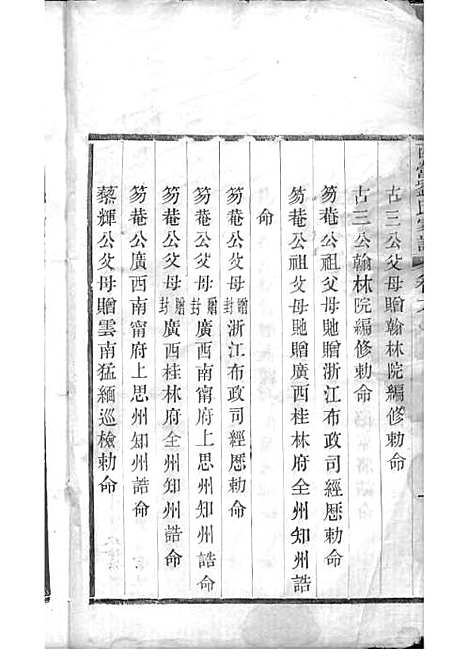 古三公父母贈翰林院編修勅命
古三公翰林院編修勅命
芴菴公祖父母貤贈浙江布政司經厯勅命
芴菴公祖父母貤贈廣西桂林府全州知州誥
命
芴菴公父母贈封浙江布政司經厯勅命
芴菴公父母贈封廣西南甯府上思州知州誥命
芴菴公父母贈封廣西桂林府全州知州誥命
芴菴公廣西南甯府上思州知州誥命
藜輝公父母贈雲南猛緬巡檢勅命